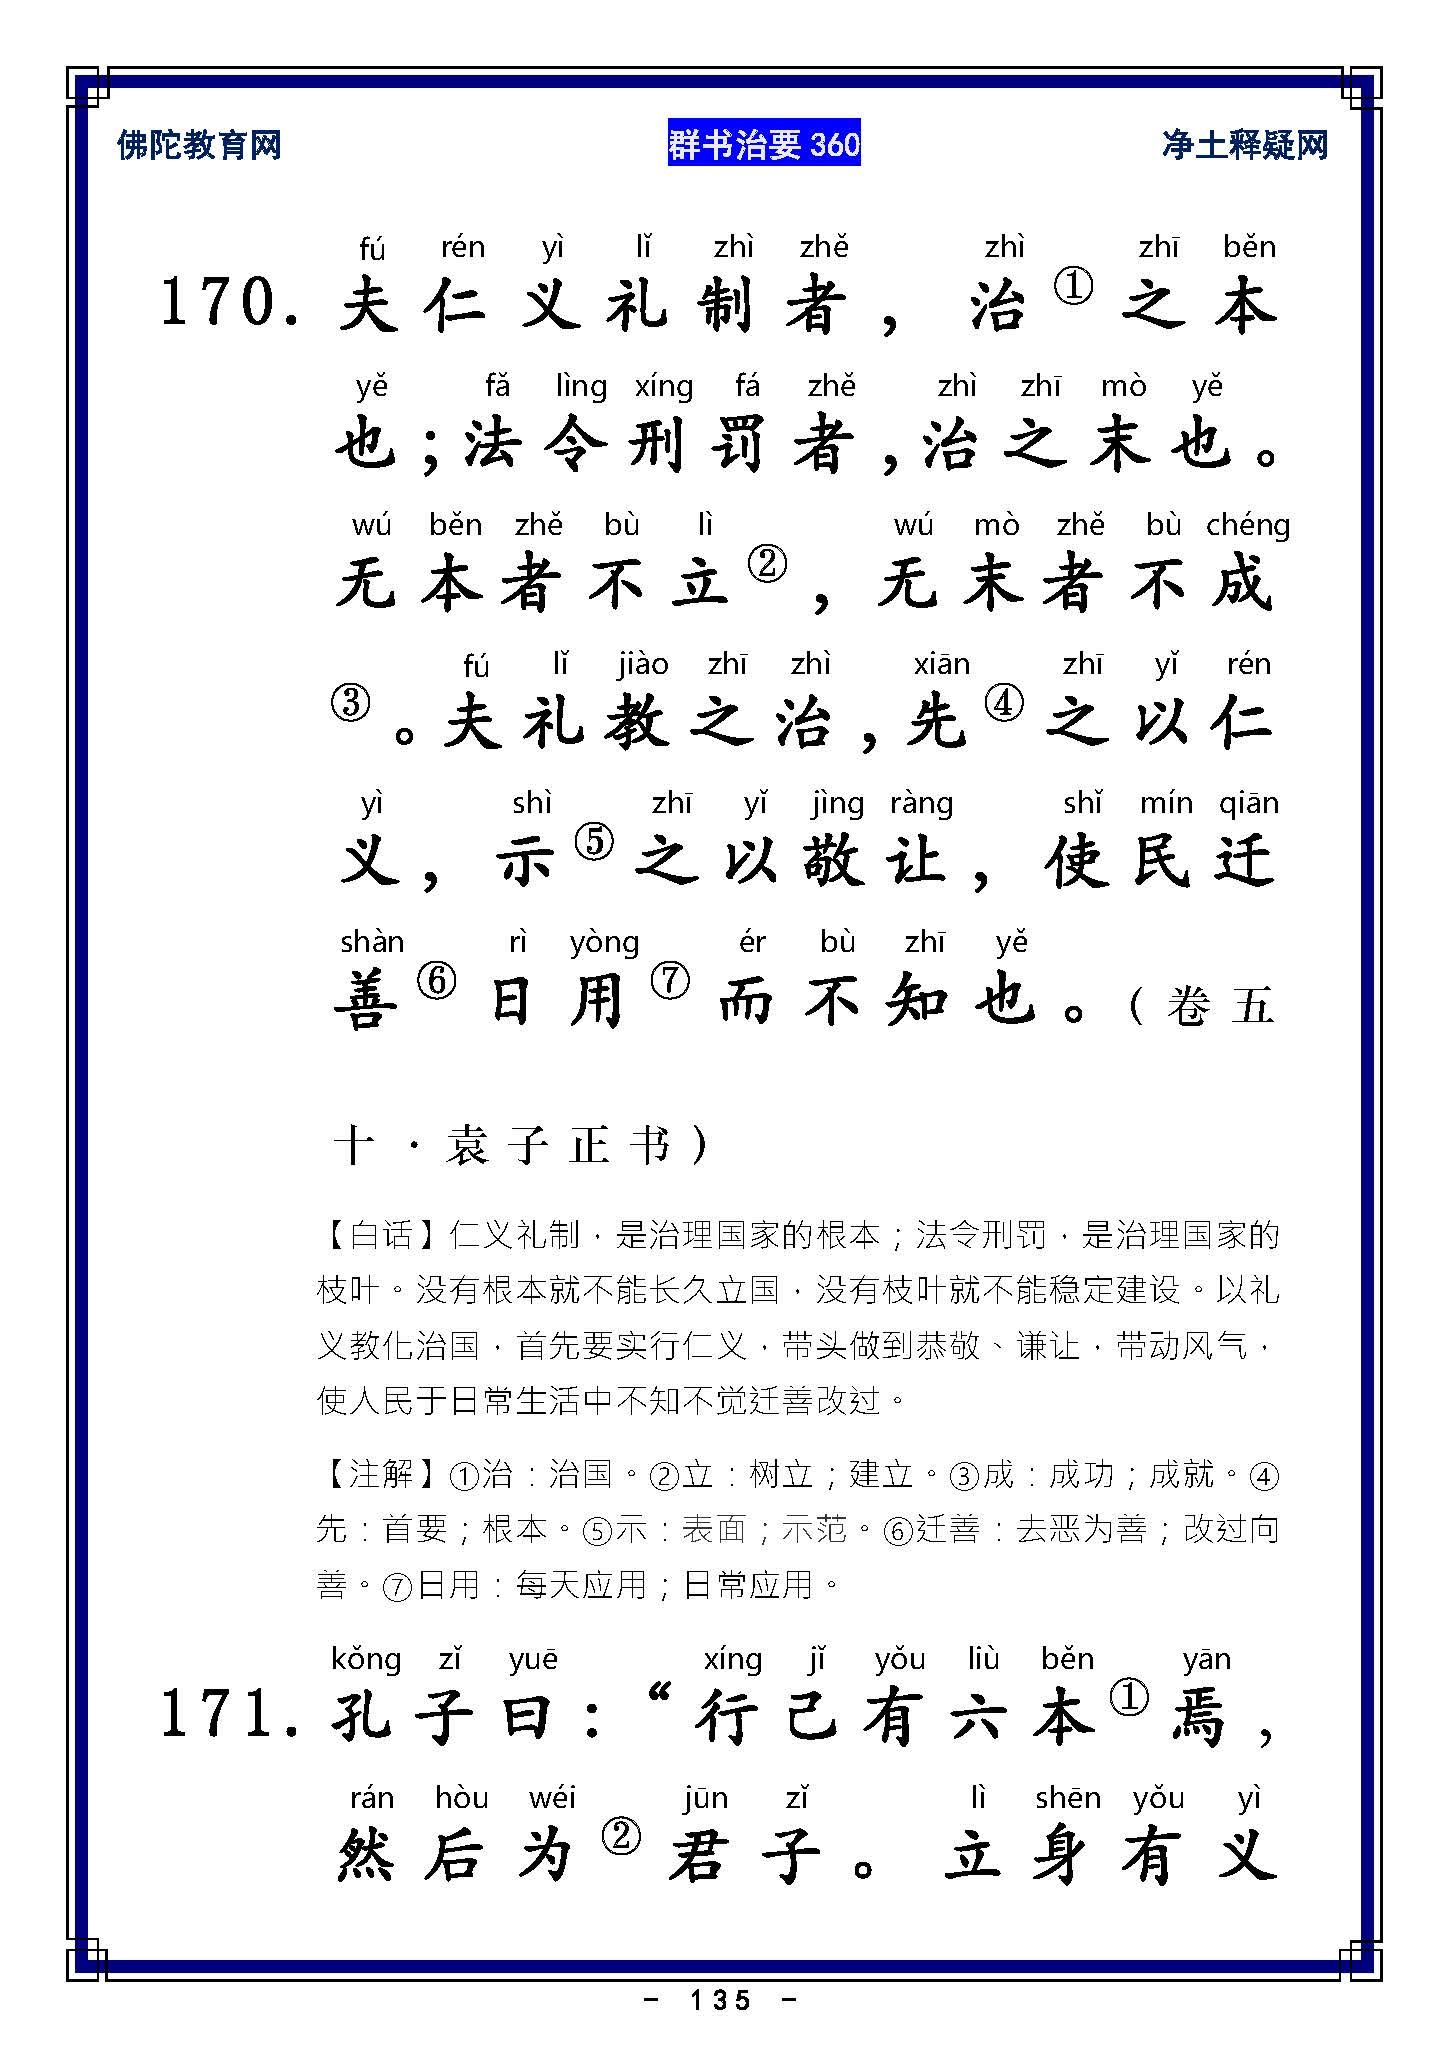 佛陀教育网 群书治要 360 净土释疑网
fú rén yì lǐ zhì zhě zhì zhī běn
170. 夫仁义礼制者，治①之本
yě fǎ lìng xíng fá zhě zhì zhī mò yě
也；法令刑罚者，治之末也。
wú běn zhě bù lì wú mò zhě bù chéng
无本者不立②，无末者不成
fú lǐ jiào zhī zhì xiān zhī yǐ rén
③。夫礼教之治，先④之以仁
yì shì zhī yǐ jìng ràng shǐ mín qiān
义，示⑤之以敬让，使民迁
shàn rì yòng ér bù zhī yě
善⑥日用⑦而不知也。（卷五
十·袁子正书）
【白话】仁义礼制，是治理国家的根本；法令刑罚，是治理国家的
枝叶。没有根本就不能长久立国，没有枝叶就不能稳定建设。以礼
义教化治国，首先要实行仁义，带头做到恭敬、谦让，带动风气，
使人民于日常生活中不知不觉迁善改过。
【注解】①治：治国。②立：树立；建立。③成：成功；成就。④
先：首要；根本。⑤示：表面；示范。⑥迁善：去恶为善；改过向
善。⑦日用：每天应用；日常应用。
kǒng zǐ yuē xíng jǐ yǒu liù běn yān
171. 孔子曰：“行己有六本①焉，
rán hòu wéi jūn zǐ lì shēn yǒu yì
然后为②君子。立身有义
- 135 -